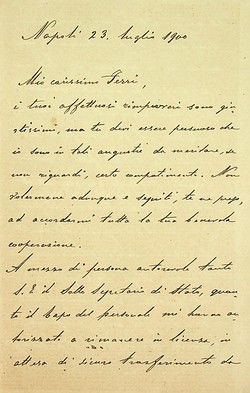 Napoli 23. luglio 1900
Mio carissimo Ferri,
i tuoi affettuosi rimproveri sono giu-
stissimi, ma tu devi essere persuaso che
io sono in tali angustie da meritare, se
non riguardi, certo compatimento. Non
volermene adunque e seguiti, te ne prego,
ad accordarmi tutta la tua benevola
cooperazione.
A mezzo di persona autorevole tanto
S. E. il Sotto Segretario di Stato, quan-
to il Capo del personale mi hanno au-
torizzato a rimanere in licenza, in
attesa di sicuro trasferimento da